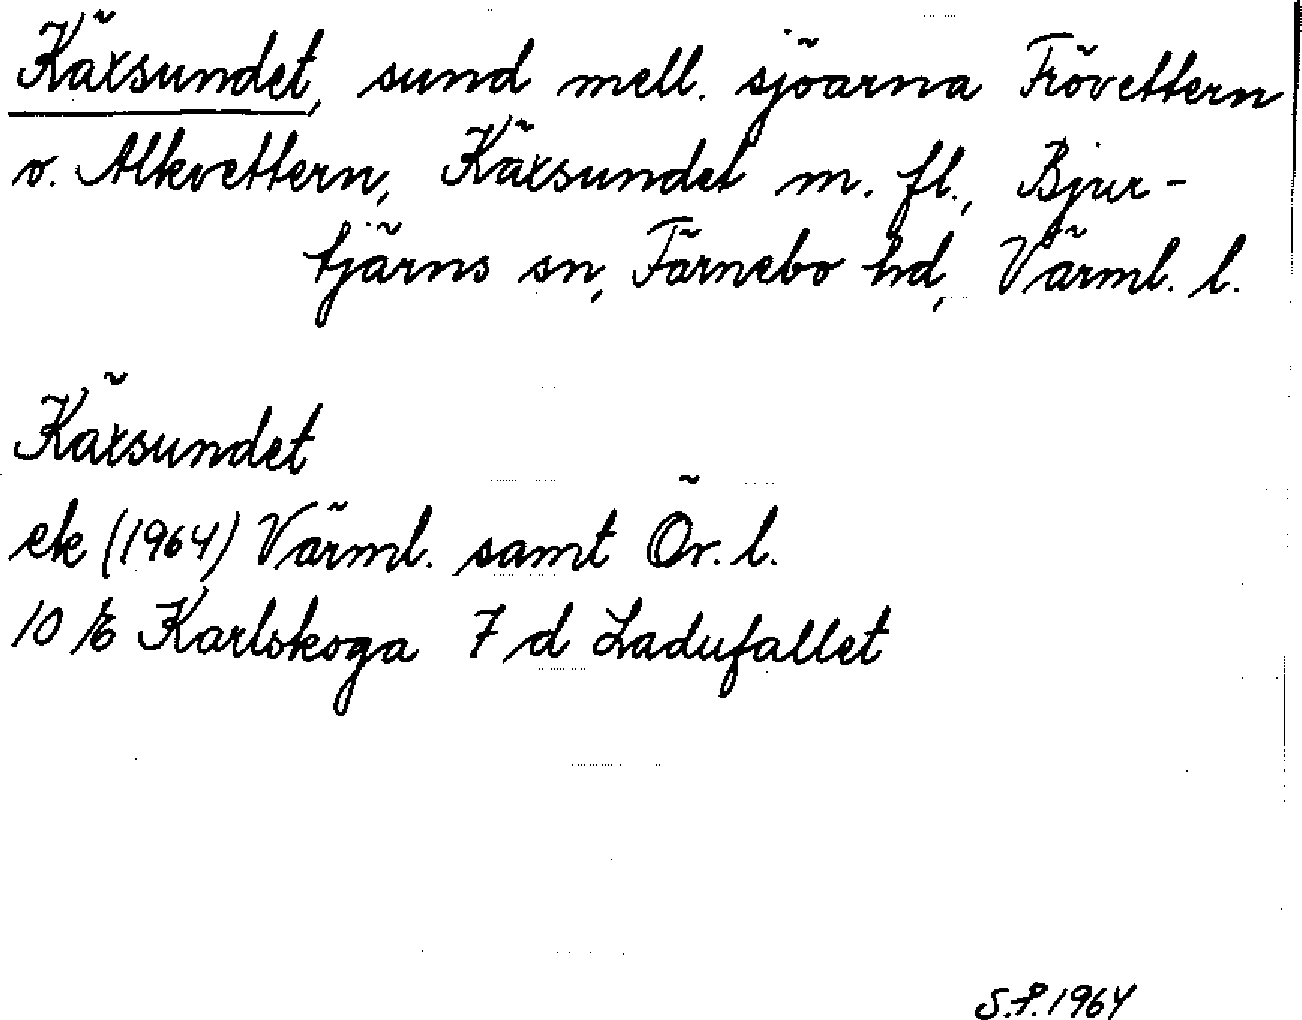 Käxsundet, sund mell. sjöarna Frövettern
o. Alkvettern, Käxsundet m. fl., Bjur-
tjärns sn, Färnebo hd, Värml. l.
Käxsundet
ek (1964) Värml. samt Ör. l.
10 E Karlskoga 7 d Ladufallet
S.P. 1964